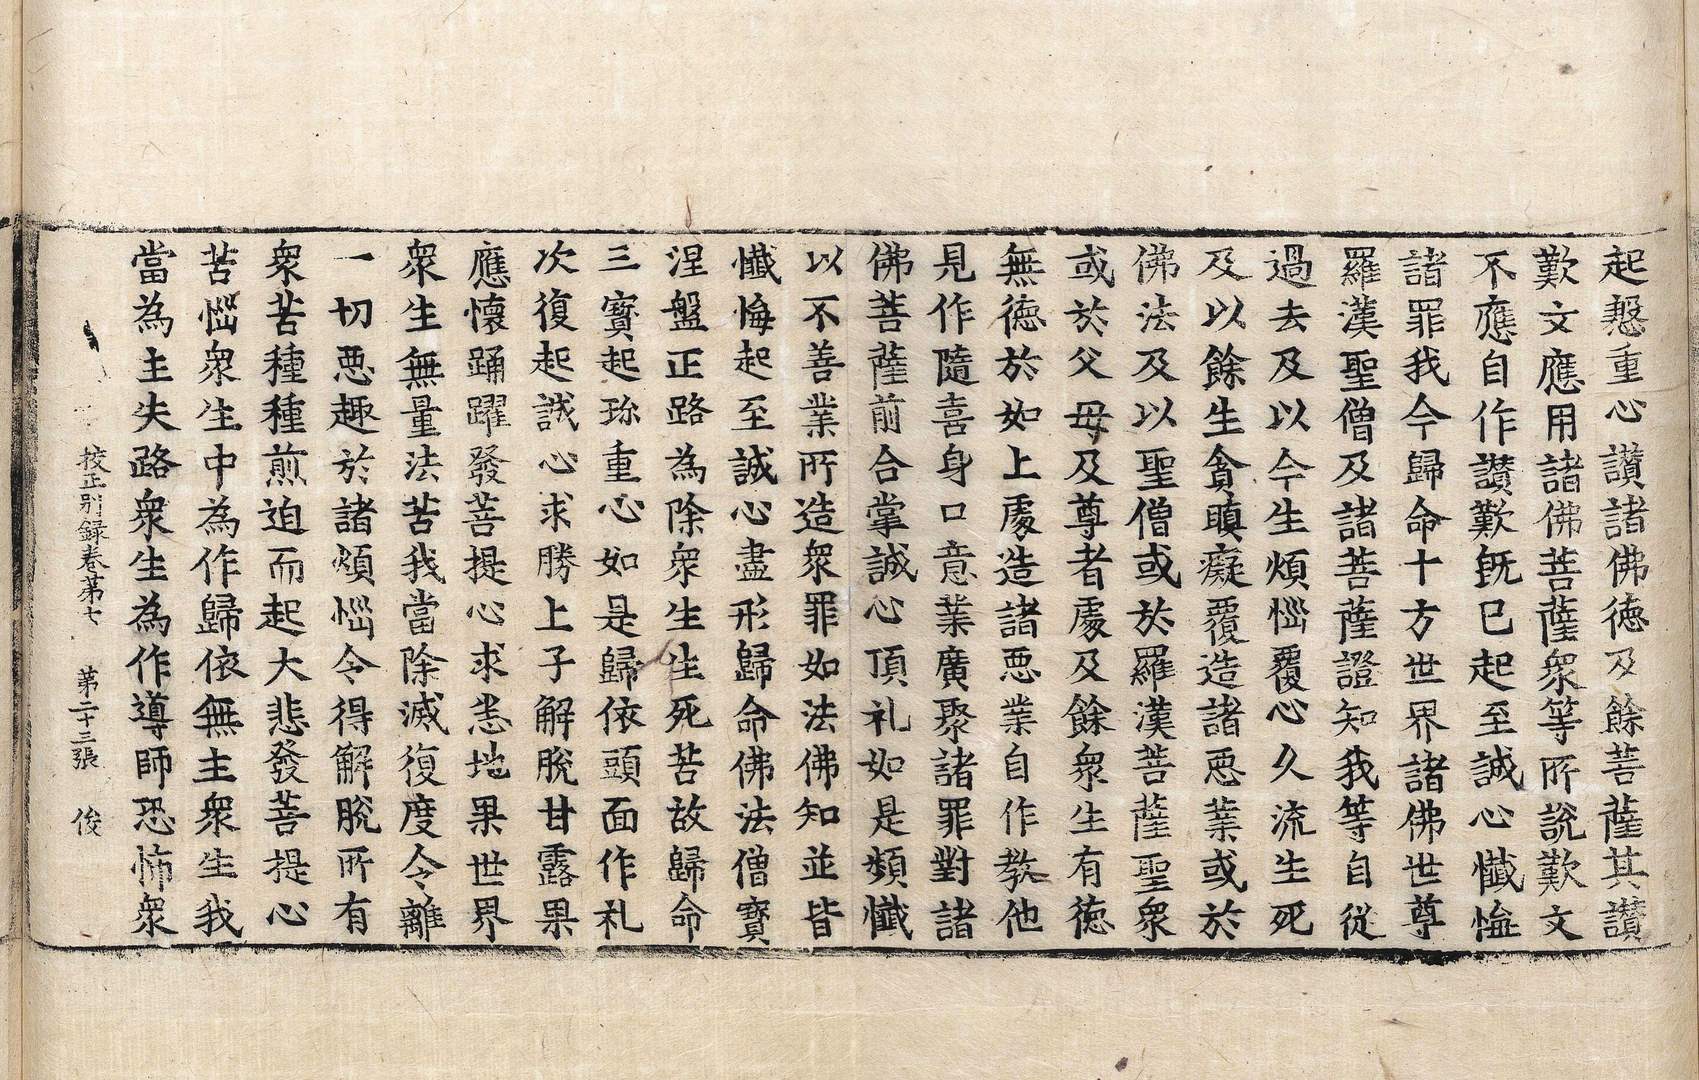 起慇重心讃諸佛德及餘菩薩其讃
歎文應用諸佛菩薩衆等所說歎文
不應自作讃歎旣已起至誠心懺悔
諸罪我今歸命十方世界諸佛世尊
羅漢聖僧及諸菩薩證知我等自從
過去及以今生煩惱覆心久流生死
及以餘生貪瞋癡覆造諸惡業或於
佛法及以聖僧或於羅漢菩薩聖衆
或於父母及尊者處及餘衆生有德
無德於如上處造諸惡業自作教他
見作隨喜身口意業廣聚諸罪對諸
佛菩薩前合掌誠心頂礼如是類懺
以不善業所造衆罪如法佛知並皆
懺悔起至誠心盡形歸命佛法僧寶
涅盤正路為除衆生生死苦故歸命
三寶起珎重心如是歸依頭面作礼
次復起誠心求勝上子解脫甘露果
應懷踊躍發菩提心求恙地果世界
衆生無量法苦我當除滅復度令離
一切惡趣於諸煩惱令得解脫所有
衆苦種種煎迫而起大悲發菩提心
苦惱衆生中為作歸依無主衆生我
當為主失路衆生為作導師恐怖衆
校正別録卷第七　第二十三張　俊